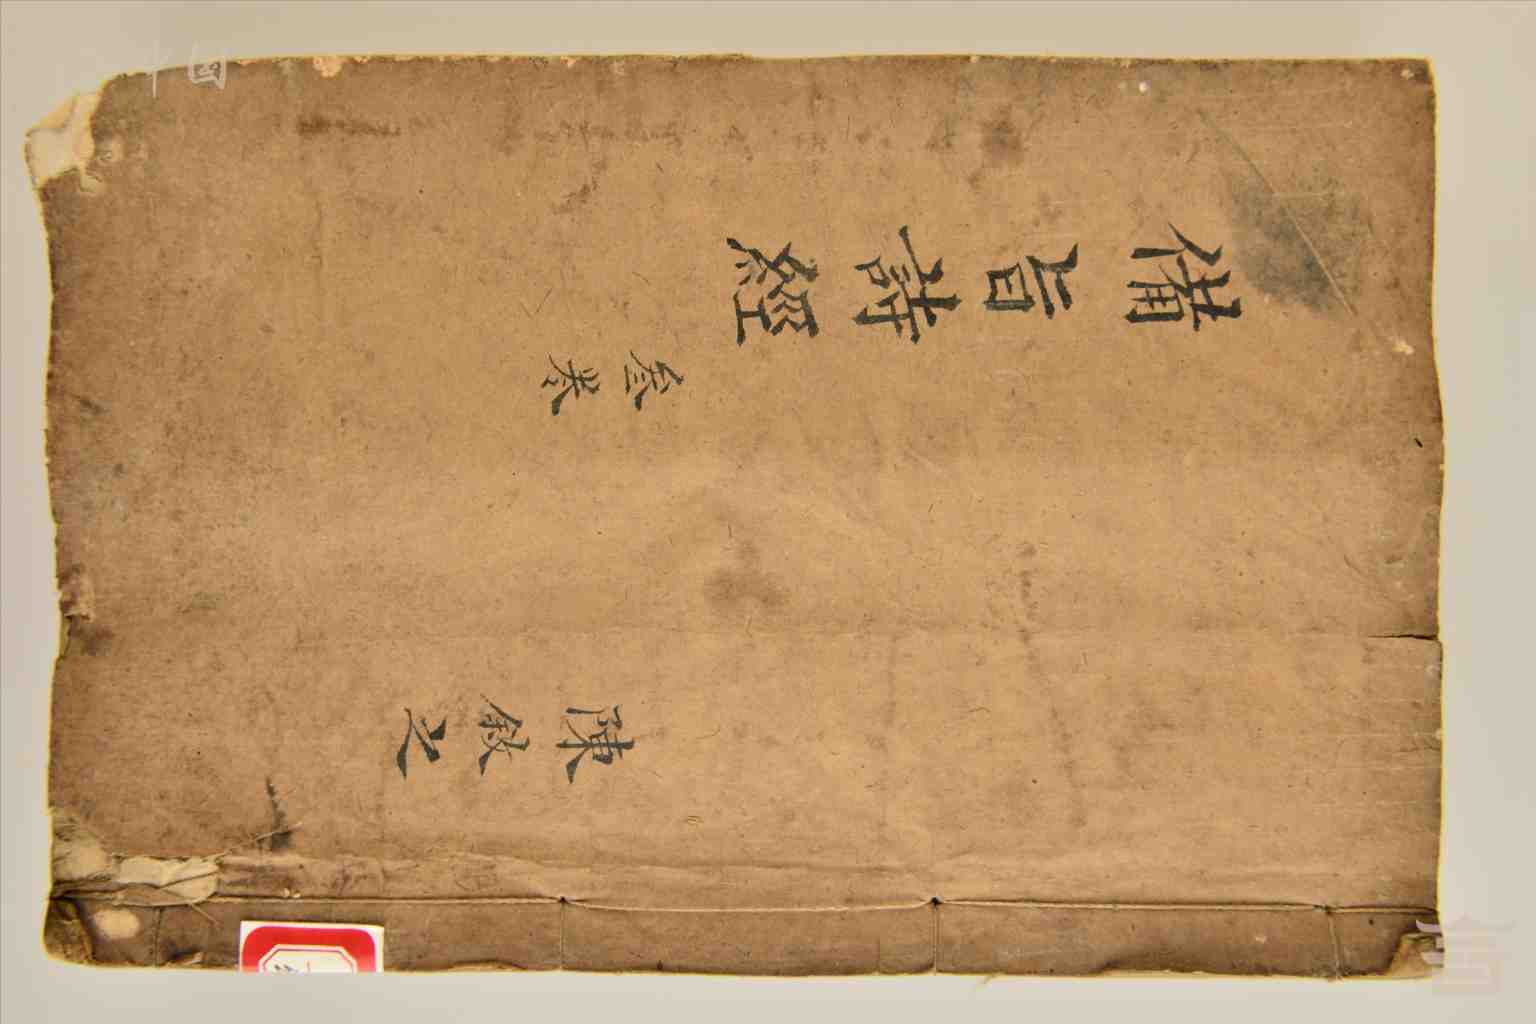 備旨詩經
叁卷
陳敘之
中国